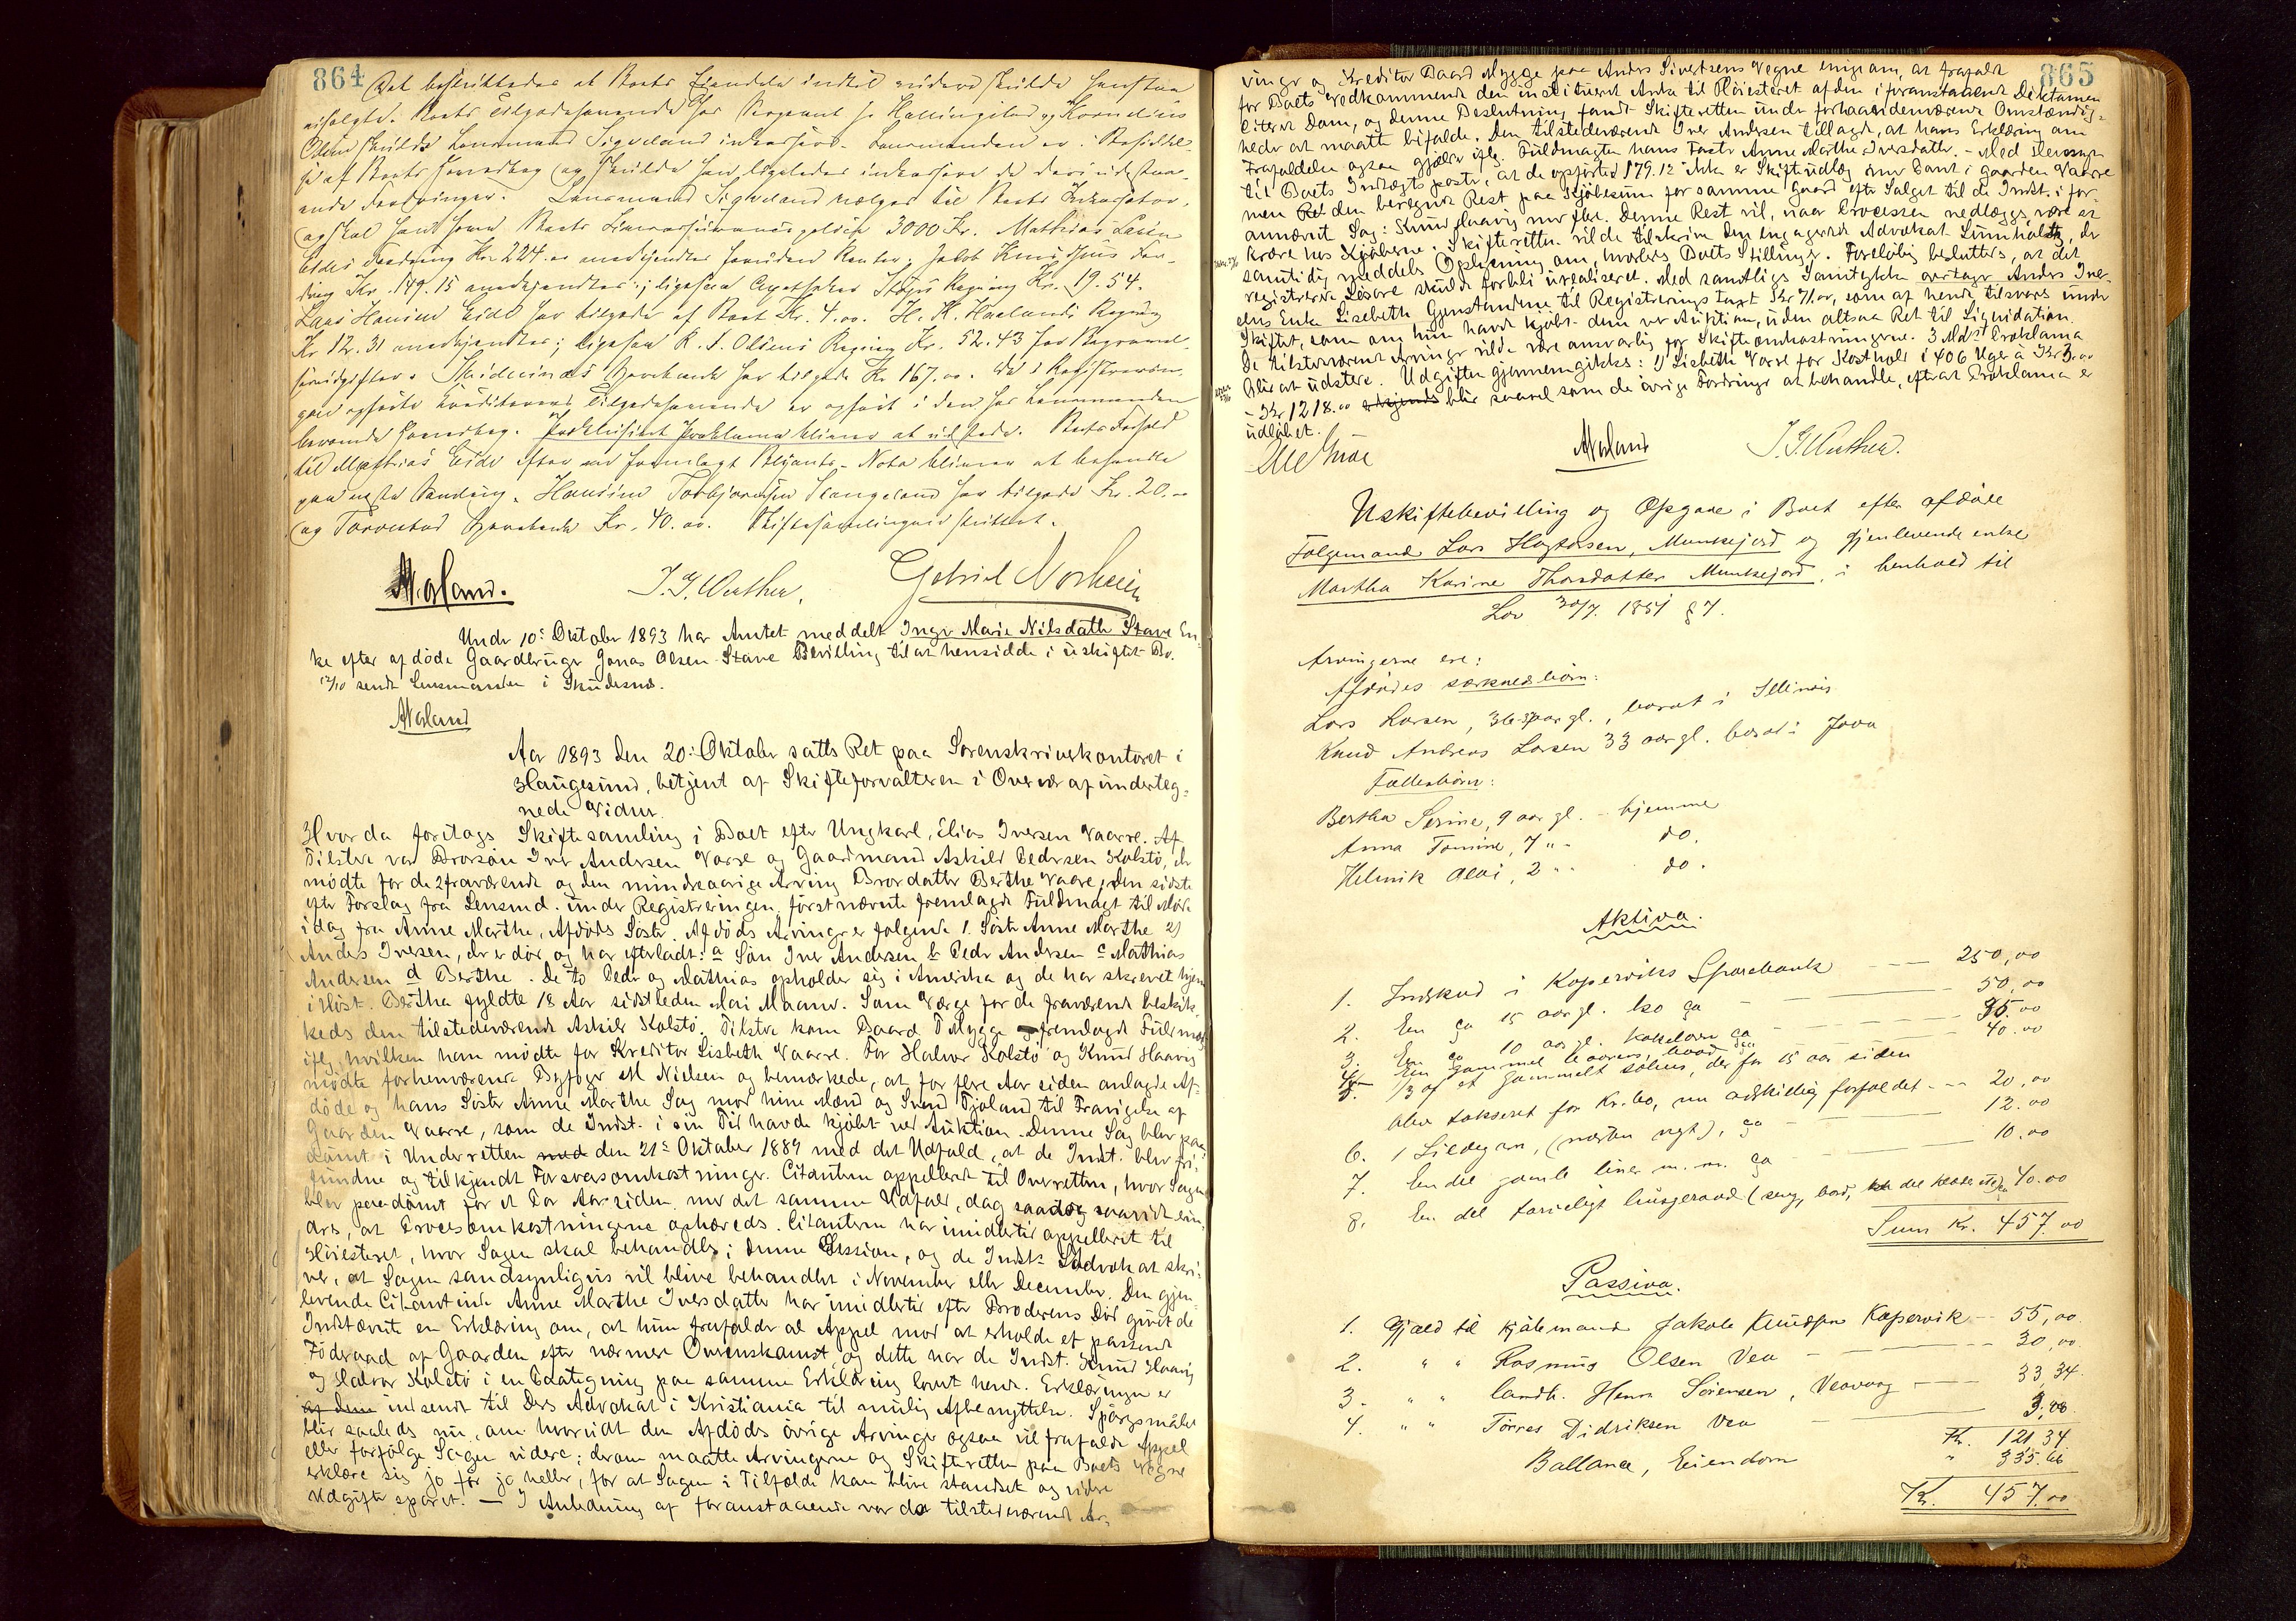 864
Det besluttedes at Boets Eiendele indtil videre skulde henstaa
usolgte. Boets Tilgodehavende hos Sergeant J. Hallingstad og Kornelius
Olsen skulde Lensmand Sigveland inkassere. Lensmanden er i Besiddel-
se af Boets Handelsbog og skulde han ligeledes inkassere de deri udestaa-
ende Fordringer. Lensmand Sigveland vælges til Boets Inkassator,
og skal hæve Boets Livsassurancepolice 3000 Kr. Mathias Larsen
Eides Fordring Kr. 224.00 anerkjendtes foruden Renter; Jakob Knudsens For-
dring Kr. 149.15 anerkjendtes; ligesaa Apotheker Regning Kr. 19.54.
Lars Hansen Eide har tilgode af Boet Kr. 4.00. H. K. Haalands Regning
Kr 12.31 anerkjendtes; ligesaa R. S. Olsens Regning Kr. 52.43 for Begravel-
sesudgifter. Skudenæs Sparebank har tilgode Kr 167.00. De i Registrerin-
gen opførte Kreditorers Tilgodehavende er opført i den hos Lensmanden
beroende Handelsbog. Præklusivt Proklama bliver at udstede. Boets Forhold
til Mathias Eide efter en fremlagt Nota bliver at behandle
paa næste Samling. Hansine Torbjørnsen Stangeland har tilgode Kr. 20.00
og Torvestad Sparebank Kr. 40.00. Skiftesamlingen sluttet.
Aaland. J. G. Wathen. Gabriel Norheim
Under 10de Oktober 1893 har Amtet meddelt Inger Marie Nilsdatter Stave En-
ke efter afdøde Gaardbruger Jonas Olsen Stave Bevilling til at hensidde i uskiftet Bo.
12/10 sendt Lensmanden i Skudesnæs.
Aaland
Aar 1893 den 20de Oktober sattes Ret paa Sorenskriverkontoret i
Haugesund, betjent af Skifteforvalteren i Overvær af underteg-
nede Vidner.
Hvor da foretages Skiftesamling i Boet efter Ungkarl, Elias Iversen Vaarre. Af
Tilstede var Brorsøn Iver Andersen Vaare og Gaardmand Askild Pedersen Kolstø, der
mødte for de 2 fraværende og den mindreaarige Arving Brordatter Berthe Vaare, den sidste
efter Forslag fra Lensmd. under Registreringen, førstnævnte fremlagde Fuldmagt til Møde
idag fra Anne Marthe, Afdødes Søster. Afdødes Arvinger er følgende 1. Søster Anne Marthe 2)
Anders Iversen, der er død, og har efterladt: a Søn Iver Andersen b Peder Andersen c Mathias
Andersen d Berthe. De to Peder og Mathias opholder sig i Amerika og de har skrevet hjem
i Høst. Bertha fyldte 18 Aar sidstleden Mai Maaned. Som Værge for de fraværende beskik-
kedes den tilstedeværende Askild Kolstø. Tilstede kom Baard T Mygge fremlagde Fuldmagt
iflg. hvilken han mødte for Kreditor Lisbeth Vaarre. For Halvor Kolstø og Knud Haavig
mødte forhenværende Byfoged M Nielsen og bemærkede, at for flere Aar siden anlagde Af-
døde og hans Søster Anne Marthe Sag mod hine Mænd og Svend Tjoland til Fravigelse af
Gaarden Vaarre, som de Indst. i sin Tid havde kjøbt ved Auktion. Denne Sag blev paa-
dømt i Underretten den 21de Oktober 1889 med det Udfald, at de Indst. blev fri-
fundne og tilkjendt Forsvarsomkostninger. Citanten appellerede til Overretten, hvor Sagen
blev paadømt for et Par Aar siden med det samme Udfald, dog saavidt æn-
dres, at Procesomkostningerne ophævedes. Citanterne har imidlertid appelleret til
Høiesteret, hvor Sagen skal behandles i denne Session, og de Indst. Advokat skri-
ver, at Sagen sandsynligvis vil blive behandlet i November eller December. Den gjen-
levende Citantinde Anne Marthe Iversdatter har imidlertid efter Broderens Død givet de
Indstævnte en Erklæring om, at hun frafalder al Appel mod at erholde et passende
Føderaad af Gaarden efter nærmere Overenskomst, og dette har de Indst. Knud Haavig
og Halvor Kolstø i en Paategning paa samme Erklæring lovet hende. Erklæringen er
indsendt til Deres Advokat i Kristiania til mulig Afbenyttelse. Spørgsmålet
blir saaledes nu, om hvorvidt den Afdødes øvrige Arvinger ogsaa vil frafalde Appel
eller forfølge Sagen videre; derom maatte Arvingerne og Skifteretten paa Boets Vegne
erklære sig jo før jo heller, for at Sagen i Tilfælde kan blive standset og videre
Udgifter sparet. — I Anledning af foranstaaende var de tilstedeværende Ar-
865
vinger og Kreditor Baard Mygge paa Anders Sivertsens Vegne enige om, at frafalde
for Boets Vedkommende den institueret Anke til Høiesteret af den i foranstaaende Diktamen
citeret Dom, og denne Beslutning fandt Skifteretten under forhaandenværende Omstændig-
heder at maatte bifalde. Den tilstedeværende Iver Andersen tillagde, at hans Erklæring om
Frafaldelse ogsaa gjælder iflg. Fuldmagten hans Faster Anne Marthe Iversdatter. – Med Hensyn
til Boets Indtægtsposter, at de opførte 179.12 ikke er Skifteudlæg med Pant i gaarden Vaarre
men den beregnede Rest paa Kjøbesum for samme Gaard efter Salget til de Indst. i for-
annævnte Sag: Knud Haavig med flere. Denne Rest vil, naar Processen nedlægges, være at
kræve hos Kjøberne. Skifteretten vilde tilskrive den engagerede Advokat Lunnholtz, der
samtidig meddeles Oplysning om, hvorledes Boets Stilling er. Foreløbig besluttes, at det
registrerede Løsøre skulde forbli urealiseret. Med samtliges Samtykke overtager Anders Iver-
sens Enke Lisebeth Gjenstandene til Registreringstaxt Kr 71.00, som af hende tilsvares under
Skiftet, som om hun havde kjøbt dem ved Auktion, uden altsaa Ret til Liquidation.
De tilstedeværende Arvinger vilde være ansvarlig for Skifteomkostningerne. 3 Mdrs Proklama
blir at udstede. Udgifter gjennemgikkes: 1) Lisbeth Vaare for Kosthold i 406 Uger à Kr 3.00
– Kr 1218.00 blir saavel som de øvrige Fordringer at behandle, efterat Proklama er
udløbet.
Aaland J. G. Wathen.
Uskiftebevilling og Opgave i Boet efter afdøde
Følgemand Lars Hagtorsen, Munkejord og gjenlevende enke
Martha Karine Thorsdatter Munkejord, i henhold til
Lov 30/7. 1851 § 7.
Arvingerne ere:
Afdødes særkuldsbørn:
Lars Larsen, 36 aar gl., boesat i Illinois
Knud Andreas Larsen 33 aar gl. bosat i Jova
Fællesbørn:
Bertha Serine, 9 aar gl. – hjemme
Anna Tomine, 7 " - do.
Helmik Olai, 2 " - do.
Aktiva.
1. Indskud i Koperviks Sparebank — 250,00
2. En ca 15 aar gl. ko ca — 50,00
3. En ca 10 aar gl. kakkelovn ca — 35.00
4. En gammel baad ca — 40.00
5. 1/3 af et gammelt søhus, der for 15 aar siden
blev takseret for Kr. 60, nu adskillig forfaldet — 20,00
6. 1 Sildegarn, (næsten nyt), ca — 12.00
7. Endel gamle liner m. m. ca — 10.00
8. En del tarveligt husgeraad (seng, bord, 40.00
Sum Kr. 457.00
Passiva.
1. Gjæld til kjøbmand Jakob Knudsen Kopervik — 55,00
2. " " Rasmus Olsen Vea — 30,00
3. " " landh. Henr. Sørensen, Veavaag — 33,34.
4. " " Tørres Didriksen Vea — 3,00.
Kr. 121,34
Ballance, Eiendom " 335.66
Kr. 457.00